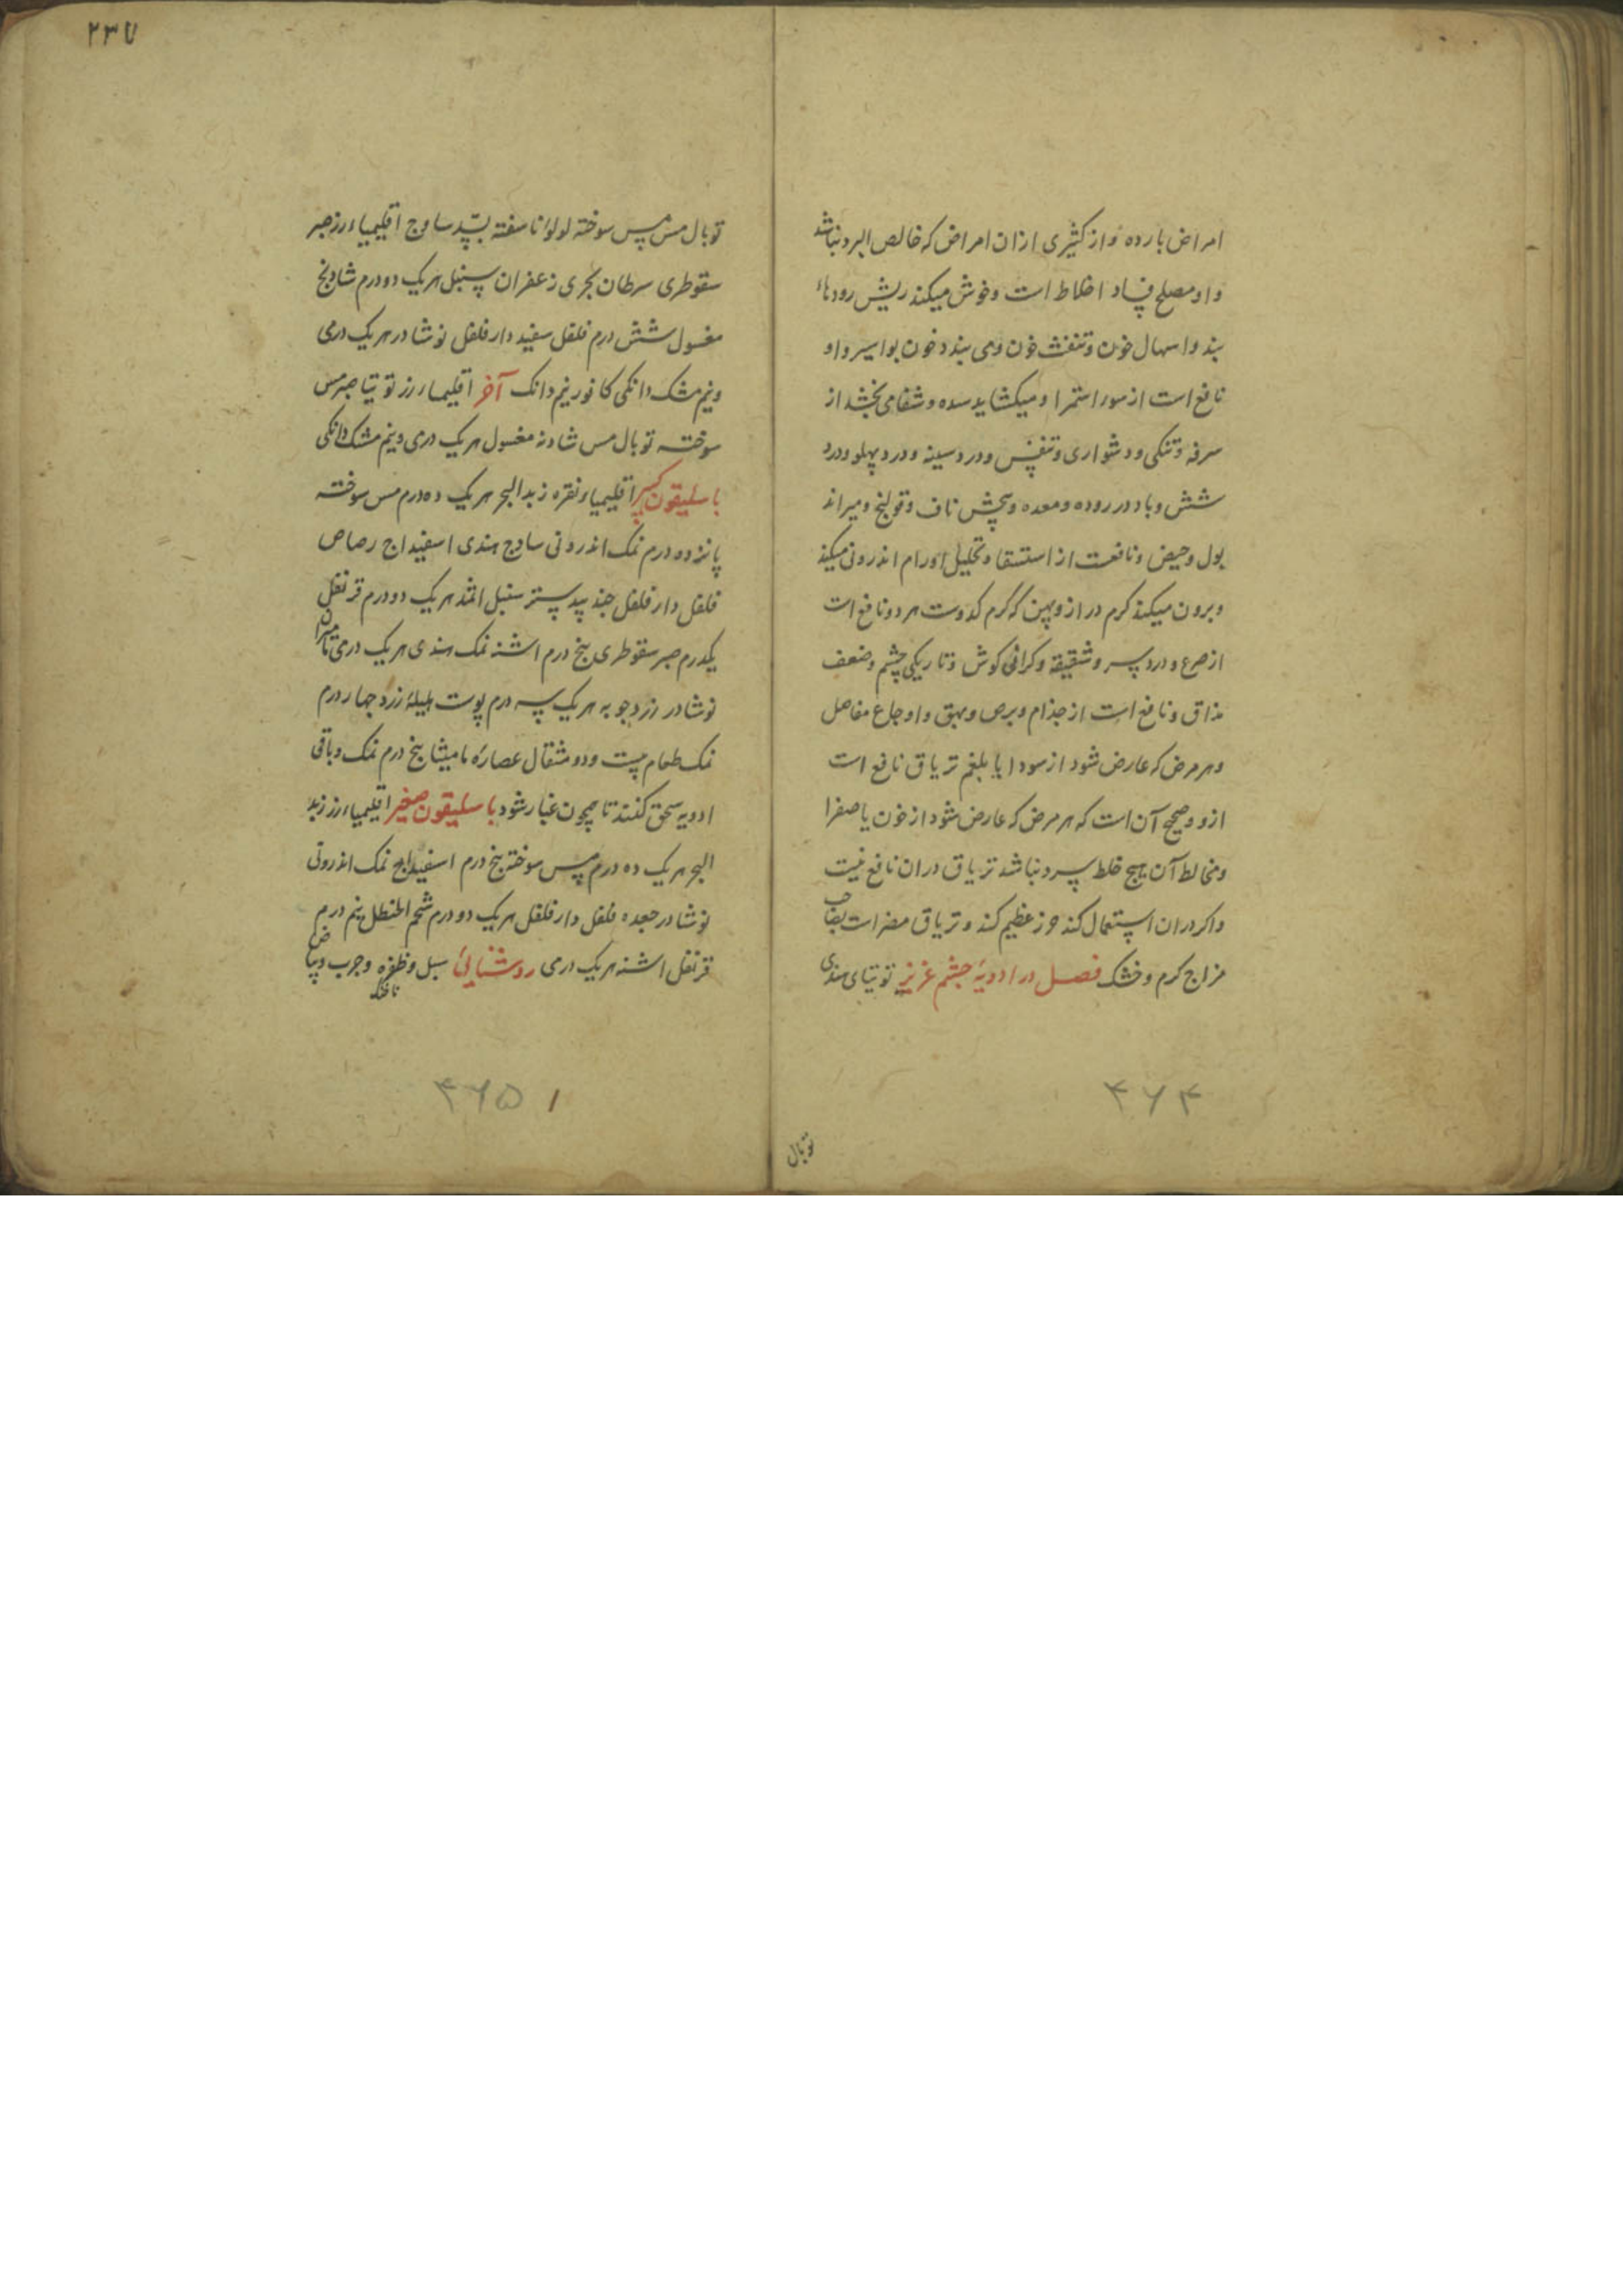 امراض بارده و از کثیری ازان امراض که خالص البرد نباشد
و او مصلح فساد اخلاط است و خوش میکند ریش رودهاء
بند و اسهال خون و تنفث خون و می بندد خون بواسیر و او
نافع است از سور استمرا و میکشاید سده و شفا می بخشد از
سرفه و تنکی و دشواری و تنفس و درد سینه و درد پهلو و درد
شش و باد در روده و معده و پیچش ناف و قولنج و میراند
بول و حیض و نافعست از استسقا و تحلیل اورام اندرونی میکند
و برون میکند کرم دراز و پهن که کرم کدوست هر دو نافع است
از صرع و درد سر و شقیقه و کرانی کوش و تاریکی چشم و ضعف
مذاق و نافع است از جذام و برص و بهق و اوجاع مفاصل
و هر مرض که عارض شود از سودا یا بلغم تریاق نافع است
ازو و صحیح آن است که هر مرض که عارض شود از خون یا صفرا
و مخالط آن هیچ خلط سرد نباشد تریاق دران نافع نیست
و اکر دران استعمال کند حرز عظیم کند و تریاق مضر است بصاحب
مزاج کرم و خشک فصل در ادویهٔ چشم عزیز توتیای هندی
۴۶۴
توبال
۲۳۷
توبال مس مس سوخته لولوٴ ناسفته بسّد ساوج اقلیمیاء زر صبر
سقوطری سرطان بحری زعفران سنبل هریک دو درم شادنج
مغسول شش درم فلفل سفید دارفلفل نوشادر هریک درمی
و نیم مشک دانکی کافور نیم دانک آخر اقلیمیاء زر توتیا صبر مس
سوخته توبال مس شادنه مغسول هریک درمی و نیم مشک دانکی
باسلیقون کبیر اقلیمیاء نقره زبد البحر هریک ده درم مس سوخته
پانزده درم نمک اندرونی سادج هندی اسفیداج رصاص
فلفل دارفلفل جند بیدستر سنبل اثمد هریک دو درم قرنفل
یکدرم صبر سقوطری پنج درم اشنه نمک هندی هریک درمی مامیران
نوشادر زردجوبه هریک سه درم پوست هلیلهٔ زرد چهار درم
نمک طعام بیست و دو مثقال عصارهٔ مامیثا پنج درم نمک و باقی
ادویه سحق کنند تا همچون غبار شود باسلیقون صغیر اقلیمیاء زر زبد
البحر هریک ده درم مس سوخته پنج درم اسفیداج نمک اندرونی
نوشادر جعده فلفل دارفلفل هریک دو درم شحم الحنظل نیم درم
قرنفل اشنه هریک درمی روشنائی سبل و ظفره و جرب و بیاض
ناخنه
۴۶۵